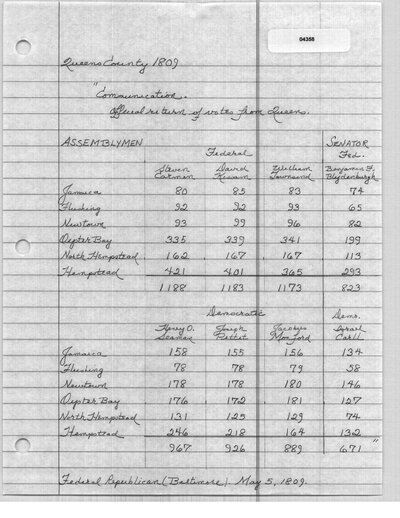 04358
Queens County 1809
"Communication.
Official return of votes from Queens.
ASSEMBLYMEN SENATOR
Federal Fed.
Steven Carman David Kissam William Townsend Benjamin F. Blydenburgh
Jamaica 80 85 83 74
Flushing 92 92 93 65
Newtown 93 99 96 82
Oyster Bay 335 339 341 199
North Hempstead 162 167 167 113
Hempstead 421 401 365 293
1188 1183 1173 823
Democratic Dem.
Henry O. Seaman Joseph Pettit Jacobus Monford Israel Carll
Jamaica 158 155 156 134
Flushing 78 78 79 58
Newtown 178 178 180 146
Oyster Bay 176 172 181 127
North Hempstead 131 125 129 74
Hempstead 246 218 164 132
967 926 889 671"
Federal Republican (Baltimore). May 5, 1809.